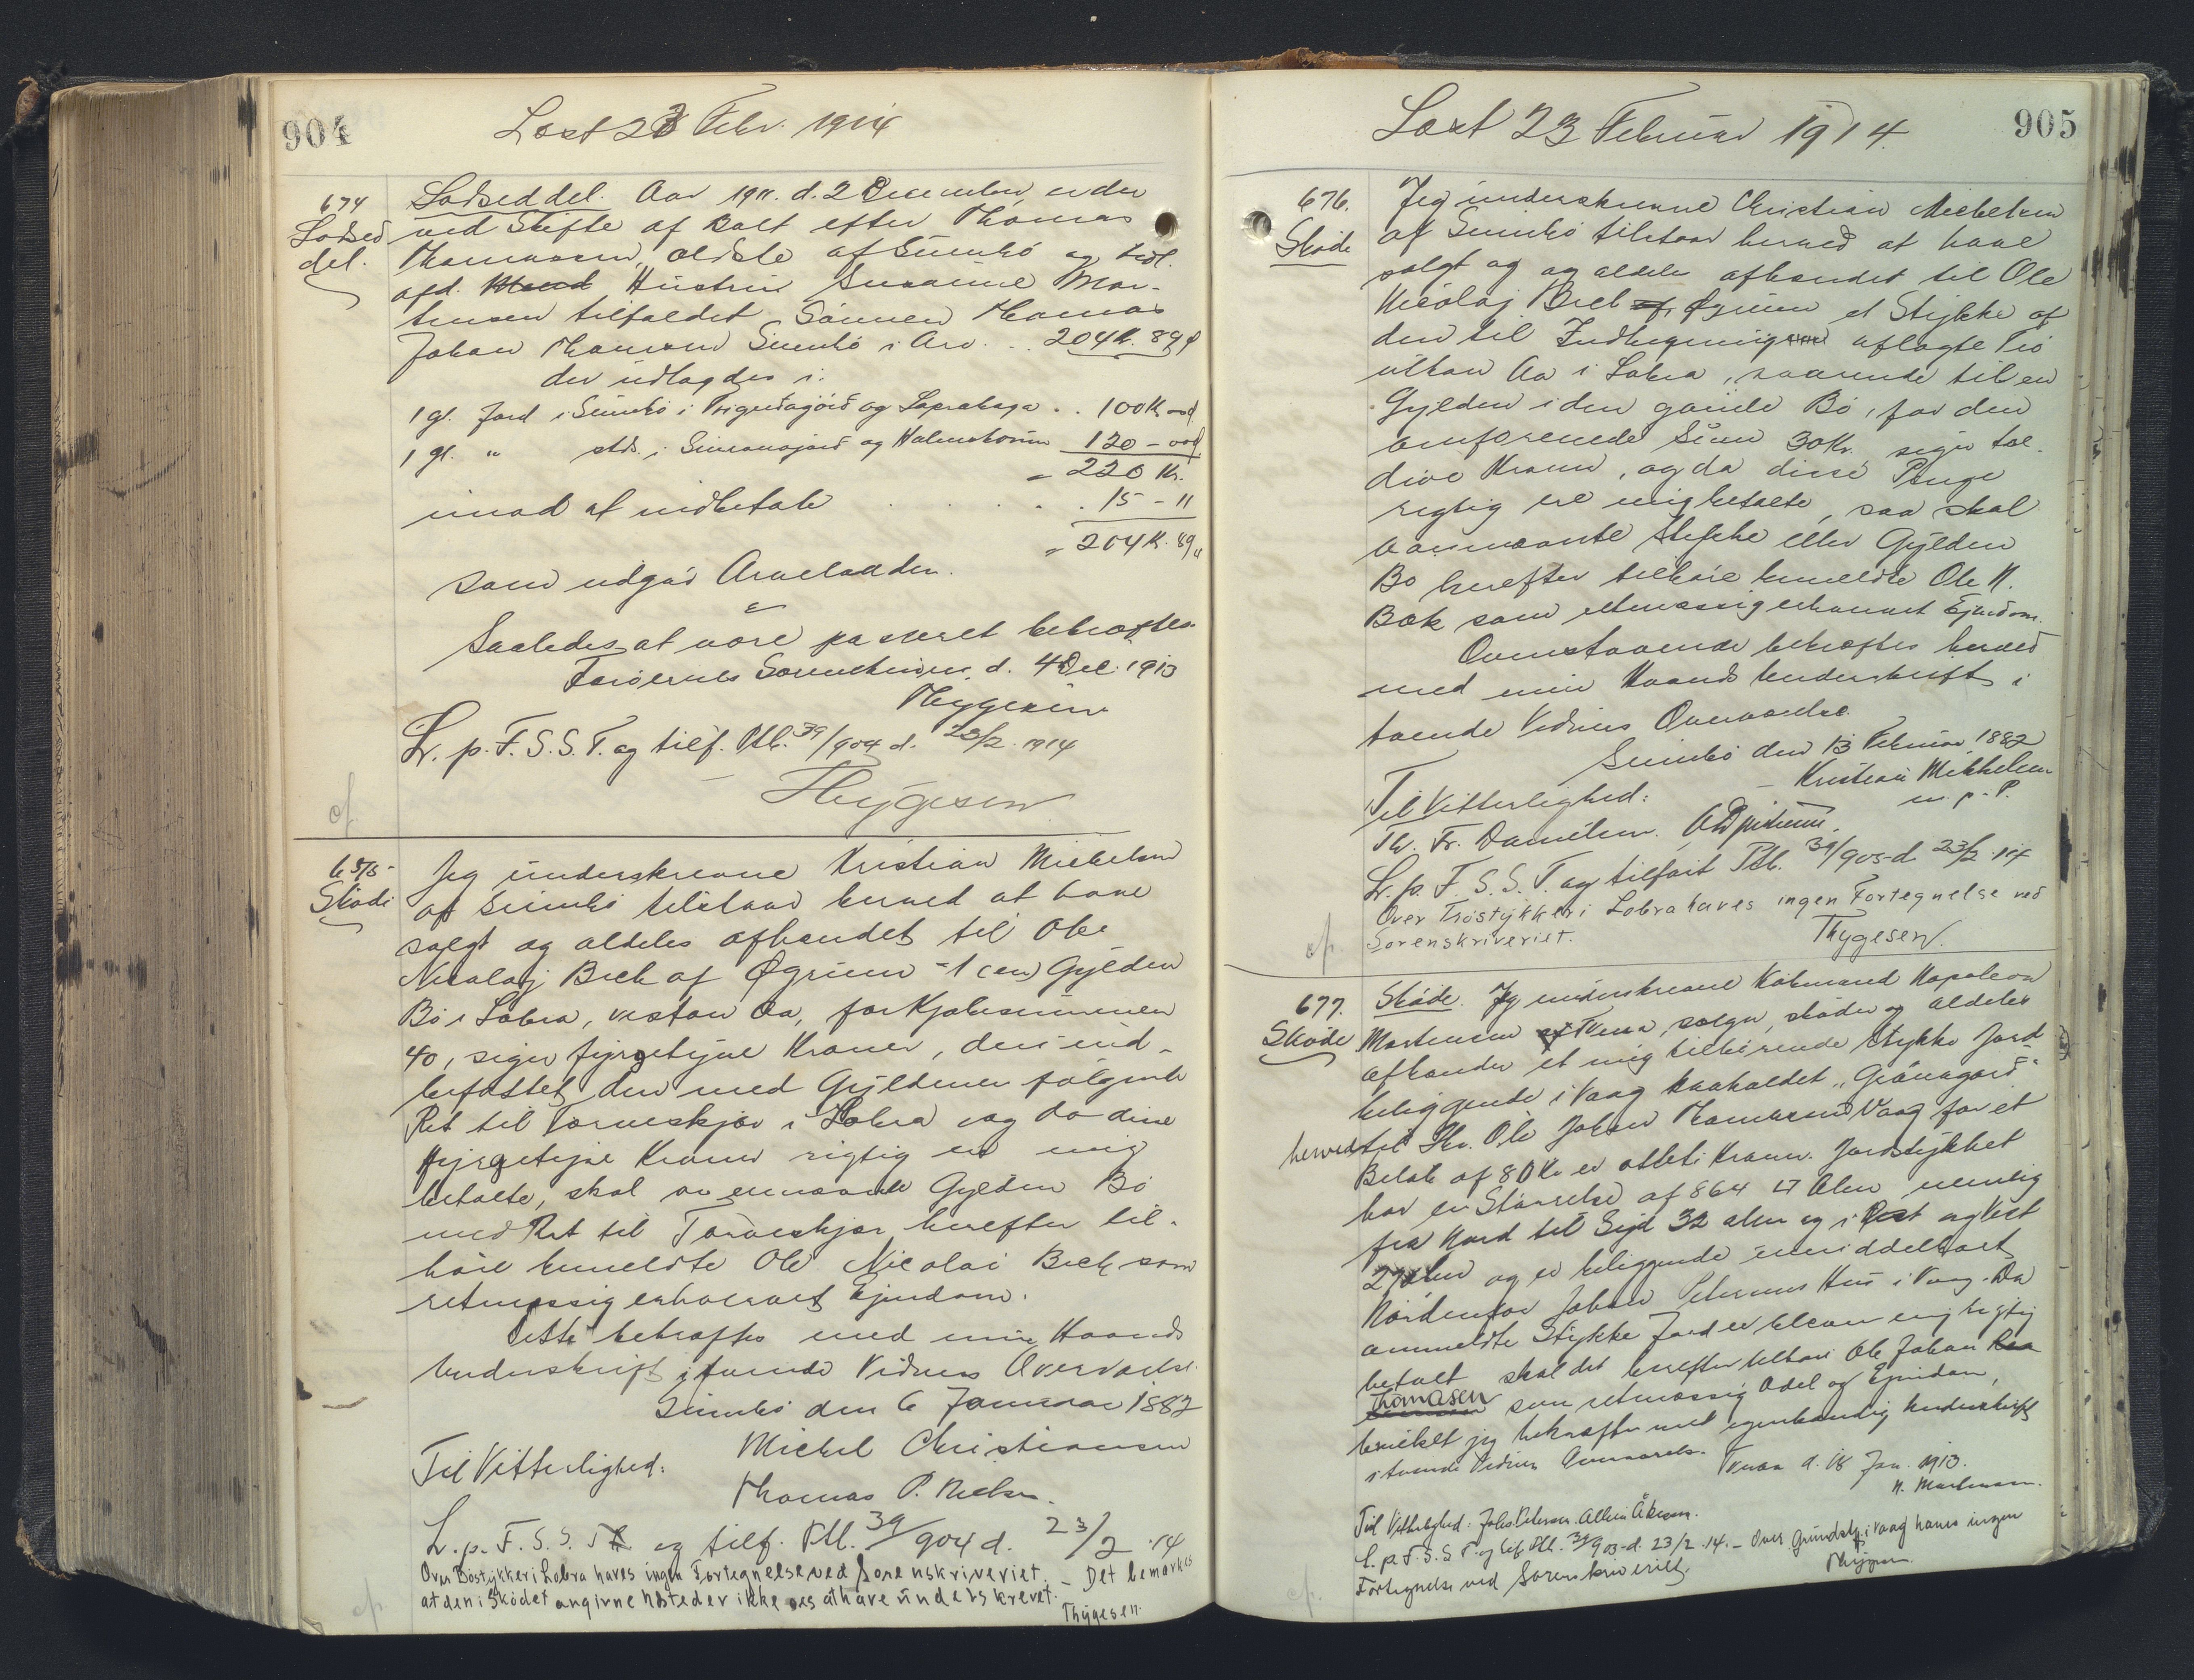 904
Læst 23 Febr. 1914
674
Lodsed
del.
Lodseddel. Aar 1911. d. 2 December, er der
ved Skifte af Boet efter Thomas
Thomassen, ældste af Sumbö og tidl.
afd. Mand Hustru Susanne Mor-
tensen tilfaldet Sönnen Thomas
Johan Thomsen Sumbö i Arv. . . 204 K. 89 ø
der udlagdes i:
1 gl. Jord i Sumbö i og . . 100 K
1 gl. " stds. i og 120 -
= 220 Kr.
imod at indbetale . . . . . 15 - 11
= 204 K. 89
som udgör Arvelodden.
Saaledes at være passeret bekræftes
Færöernes Sorenskriveri, d. 4 Dec. 1913
Thygesen
L. p. F. S. S. T. og tilf. Ptb. 39/904 d. 23/2. 1914
Thygesen
675
Sköde
Jeg underskrevne Kristian Michelsen
af Sumbö tilstaar herved at have
solgt og aldeles afhændet til Ole
Nicolaj Bech af Øgrum - 1 (en) Gylden
Bö i Lobra, vestan Aa, for Kjøbesummen
40, siger fyrgetyve Kroner, deri ind-
befattet den med Gyldenen følgende
Ret til Torveskjær i Lobra og da disse
fyrgetyve Kroner rigtig er mig
betalte, skal ovennævnte Gylden Bö
med Ret til Torveskjær herefter til-
høre bemeldte Ole Nicolai Bech som
retmæssig erhvervet Ejendom.
Dette bekræftes med min Haands
Underskrift i tvende Vidners Overværelse.
Sumbö den 6 Januar 1882
Til Vitterlighed: Michel Christiansen
Thomas P. Nielsen.
L. p. F. S. S. T. og tilf. Ptb. 39/904 d. 23/2 14
Over Böstykker i Lobra haves ingen Fortegnelse ved Sorenskriveriet. - Det bemærkes
at den i Sködet angivne Udsteder ikke ses at have underskrevet.
Thygesen
905
Læst 23 Februar 1914.
676.
Sköde
Jeg underskrevne Christian Michelsen
af Sumbö tilstaar herved at have
solgt og og aldeles afhændet til Ole
Nicolaj Bech af Øgrum et Stykke af
den til Indhegning aflagte Trö
uttan Aa i Lobra, svarende til en
Gylden i den gamle Bö, for den
omforenede Sum 30 Kr. siger tre-
dive Kroner, og da disse Penge
rigtig ere mig betalte, saa skal
ovennævnte Stykke eller Gylden
Bö herefter tilhøre bemeldte Ole N.
Bæk som retmæssig erhvervet Ejendom.
Ovenstaaende bekræftes herved
med min Haands Underskrift i
tvende Vidners Overværelse.
Sumbö den 13 Februar 1882
Til Vitterlighed: Kristian Mikkelsen
m. p. P.
Th. Fr. Danielsen.
L. p. F. S. S. T. og tilført Ptb. 39/905 d. 23/2 14
Over Tröstykker i Lobra haves ingen Fortegnelse ved
Sorenskriveriet. Thygesen.
677.
Sköde
Sköde. Jeg underskrevne Købmand Napoleon
Mortensen af Tveraa, sælger, skøder og aldeles
afhænder et mig tilhørende Stykke Jord
beliggende i Vaag kaaholdet "Gránagard"
herved til Hr. Ole Johan Thomasen Vaag for et
Beløb af 80 Kr er otteti Kroner. Jordstykket
har en Størrelse af 864 □ Alen, nemlig
fra Nord til Syd 32 alen og i Øst og Vest
27 alen og er beliggende umiddelbart
Nordenfor Johan Petersens Hus i Vaag. Da
anmeldte Stykke Jord er bleven mig rigtig
betalt skal det herefter tilhøre Ole Johan
Thomasen som retmæssig Odel og Ejendom,
hvilket jeg bekræfter med egenhændig Underskrift
i tvende Vidners Overværelse.
Tveraa d. 18 Jan. 1913.
N. Mortensen.
Til Vitterlighed: Johs. Petersen.
L. p. F. S. S. T. og tilf. Ptb. 39/905 d. 23/2 14. - Over Grundstk. i Vaag haves ingen
Fortegnelse ved Sorenskriveriet.
Thygesen